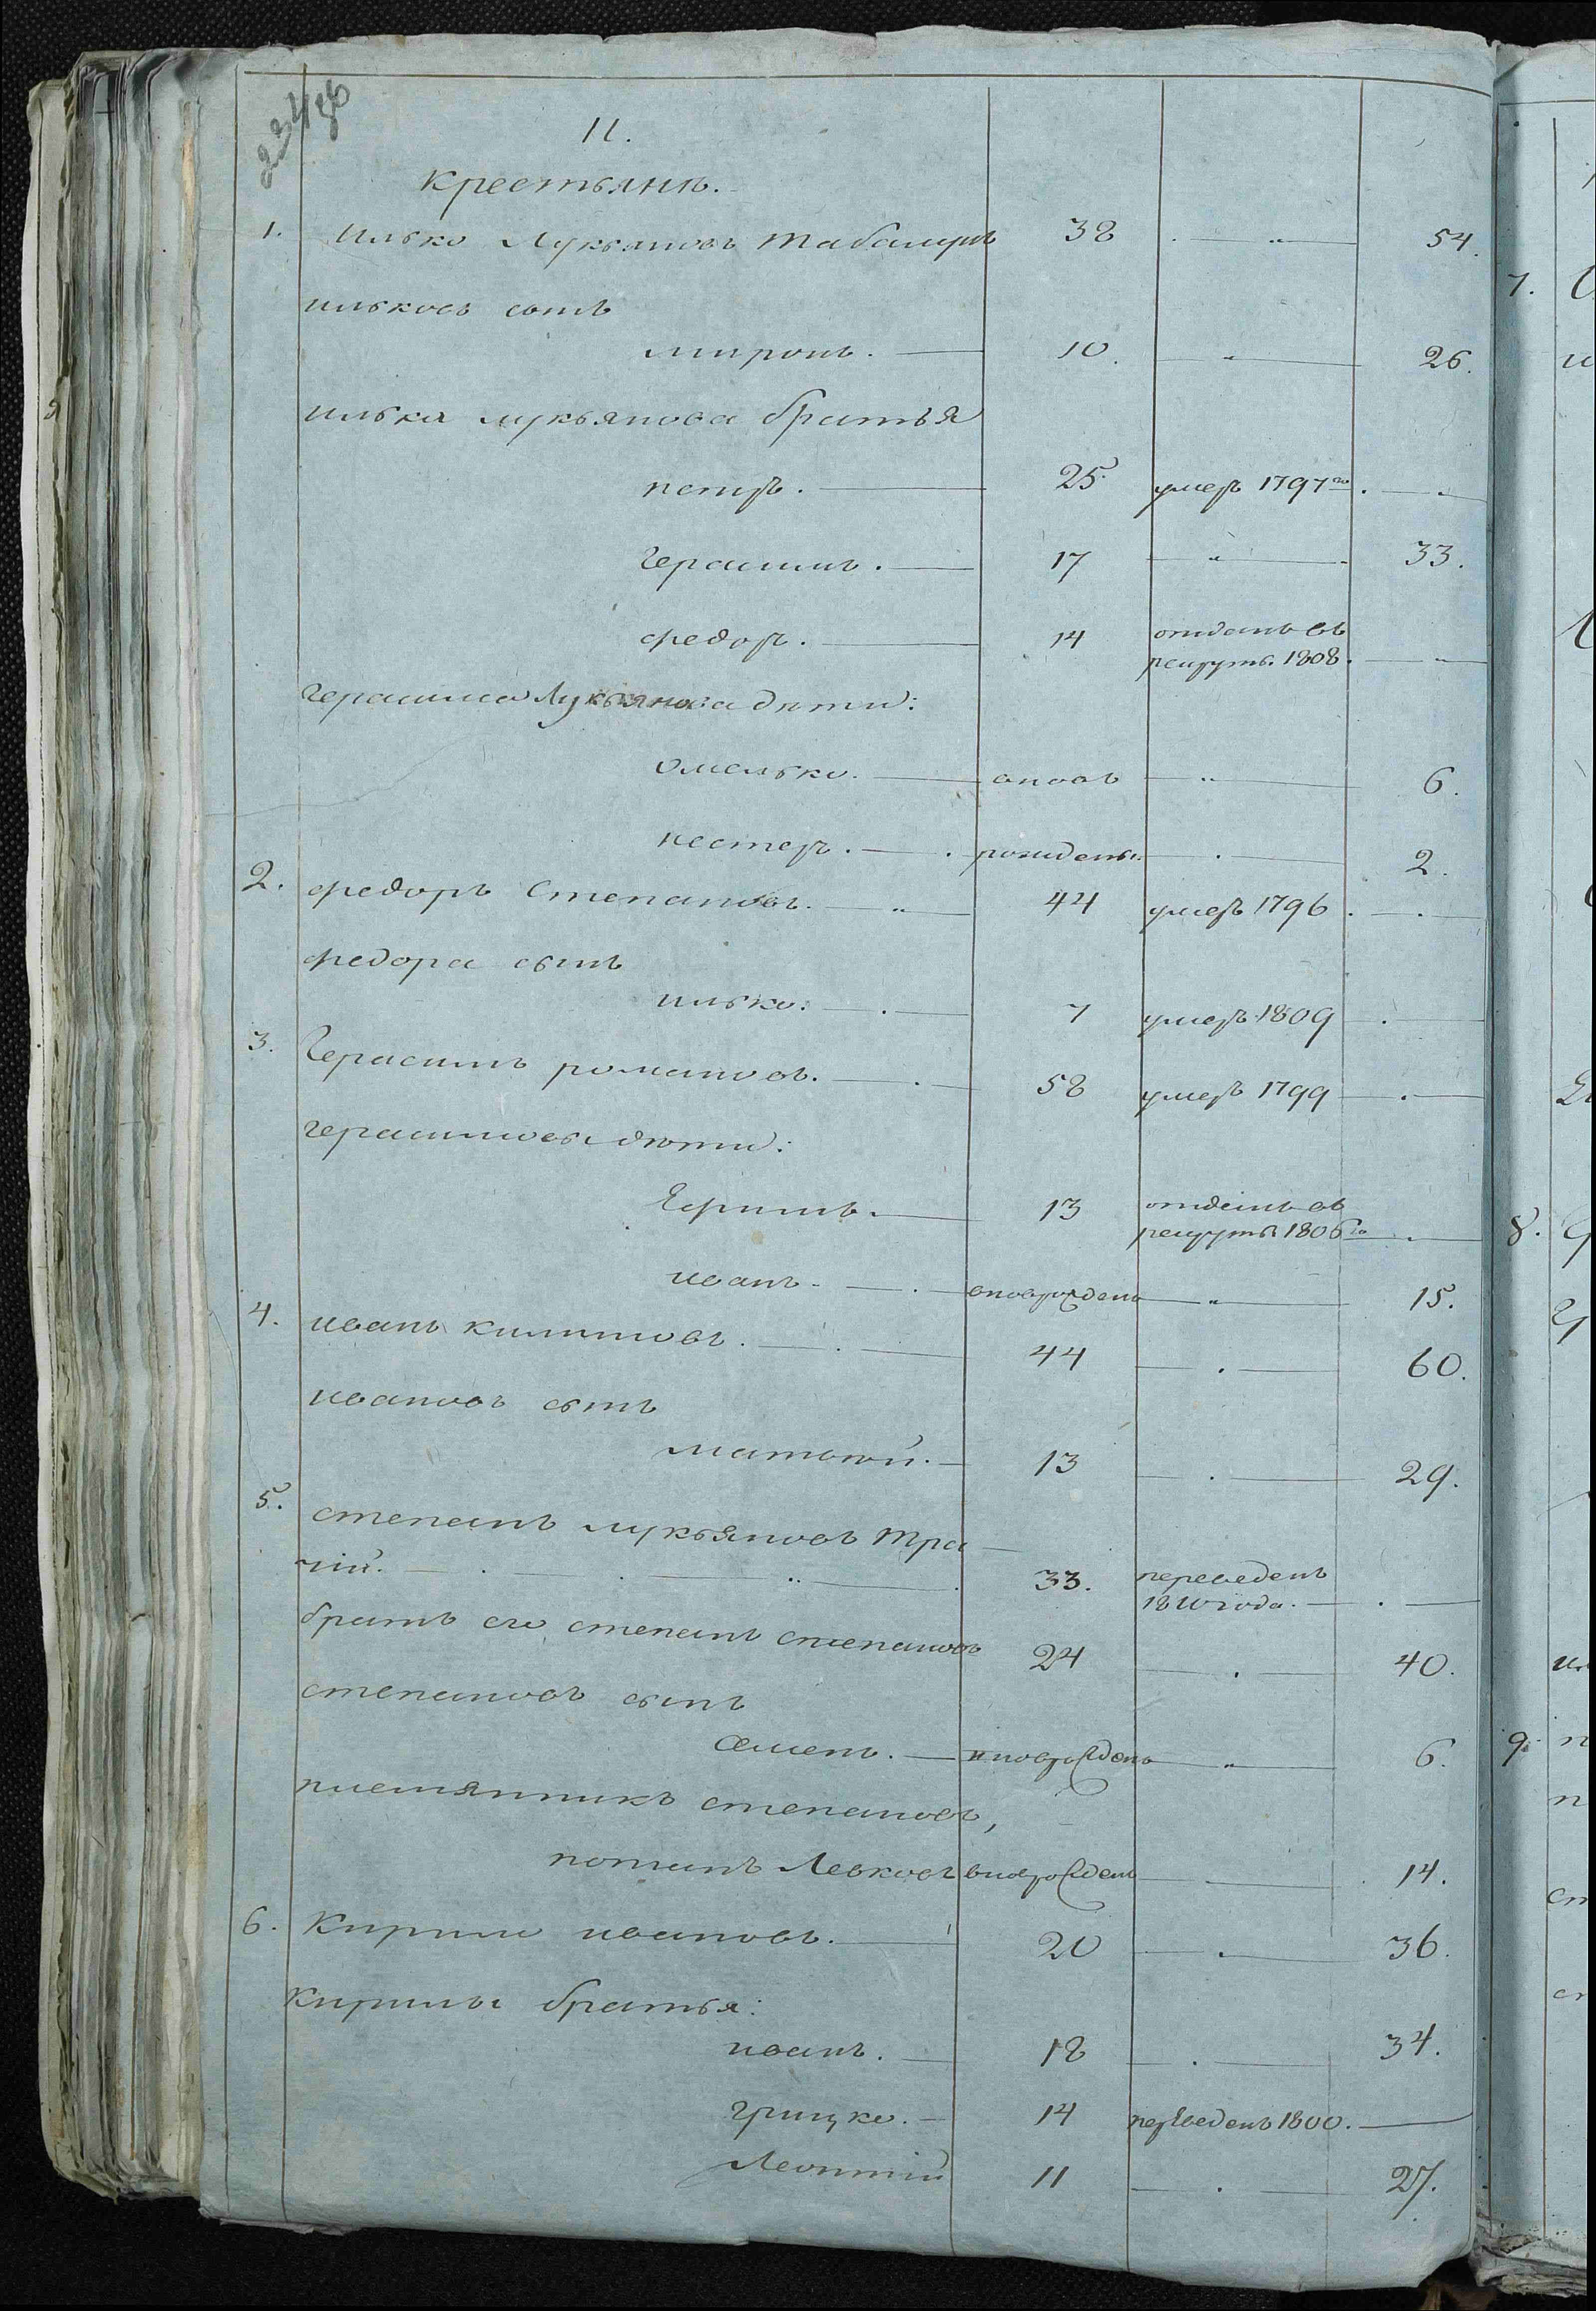 234
11.
Крестьянъ.
1. Илько Лукьяновъ Табамурь 38 54.
ильковъ сынъ
миронъ. 10. 26.
илька лукьянова братья
петръ. 25 умеръ 1797го.
герасимъ. 17 33.
федоръ. 14 отданъ въ
рекруты. 1808.
герасима Лукьянова дети:
омелько. вновь 6.
нестеръ. рождены. 2.
2. федоръ Степановъ. 44 умеръ 1796.
федора сынъ
илько. 7 умеръ 1809
3. Герасимъ романовъ. 58 умеръ 1799
герасимовы дѣти:
Ефимъ. 13 отданъ въ
рекруты 1806го
иванъ. вноврожденъ 15.
4. иванъ климовъ. 44 60.
ивановъ сынъ
матвѣй. 13 29.
5. степанъ лукьяновъ Тра
чій. 33. переведенъ
1810 года.
братъ его степанъ степановъ 24 40.
степановъ сынъ
Семенъ. вноврожденъ 6.
племянникъ степановъ,
потапъ Левковъ вноврожденъ 14.
6. Кирило ивановъ. 20 36.
Кирилы братья:
иванъ. 18 34.
грицко. 14 переведенъ 1800.
Леонтій 11 27.
7.
8.
9.